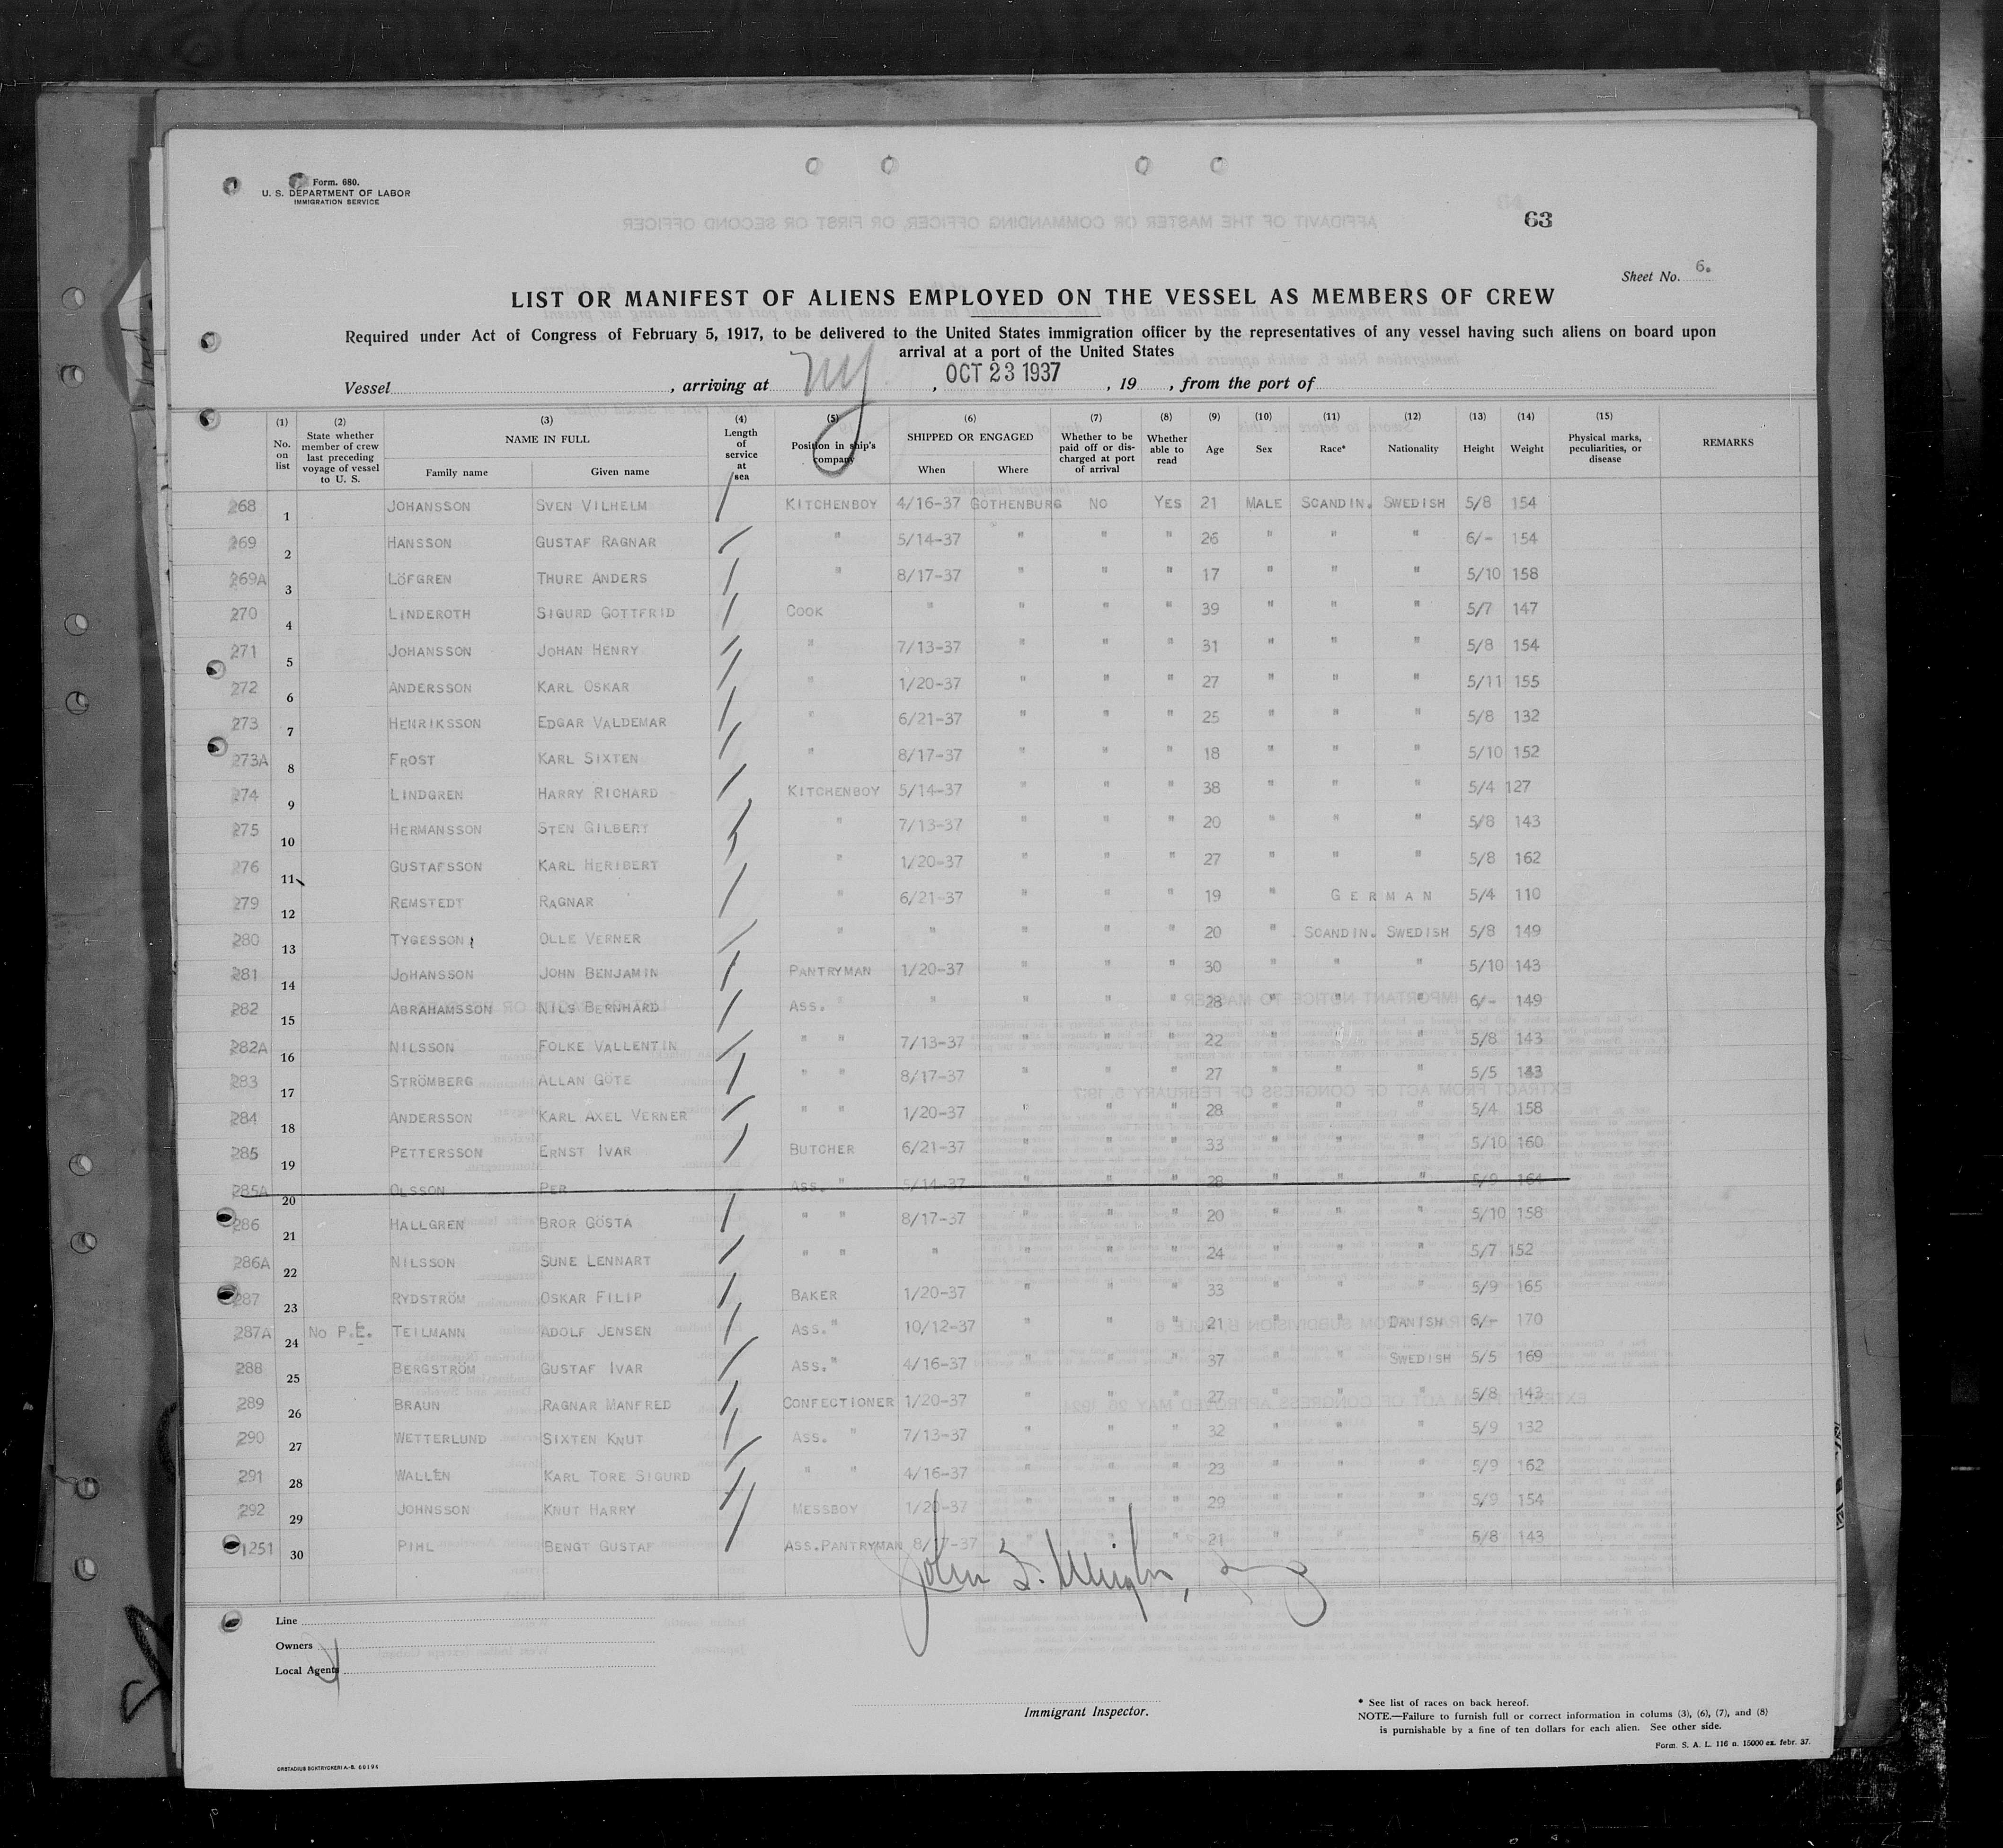 Form. 680.
U. S. DEPARTMENT OF LABOR
IMMIGRATION SERVICE
63
Sheet No. 6.
LIST OR MANIFEST OF ALIENS EMPLOYED ON THE VESSEL AS MEMBERS OF CREW
Required under Act of Congress of February 5, 1917, to be delivered to the United States immigration officer by the representatives of any vessel having such aliens on board upon
arrival at a port of the United States
Vessel , arriving at NY , OCT 23 1937 , 19 , from the port of
(1) No. on list (2) State whether member of crew last preceding voyage of vessel to U. S. (3) NAME IN FULL Family name Given name (4) Length of service at sea (5) Position in ship's company (6) SHIPPED OR ENGAGED When Where (7) Whether to be paid off or discharged at port of arrival (8) Whether able to read (9) Age (10) Sex (11) Race* (12) Nationality (13) Height (14) Weight (15) Physical marks, peculiarities, or disease REMARKS
268 1 JOHANSSON SVEN VILHELM KITCHENBOY 4/16-37 GOTHENBURG NO YES 21 MALE SCANDIN. SWEDISH 5/8 154
269 2 HANSSON GUSTAF RAGNAR " 5/14-37 " " " 26 " " " 6/- 154
269A 3 LÖFGREN THURE ANDERS " 8/17-37 " " " 17 " " " 5/10 158
270 4 LINDEROTH SIGURD GOTTFRID COOK " " " " 39 " " " 5/7 147
271 5 JOHANSSON JOHAN HENRY " 7/13-37 " " " 31 " " " 5/8 154
272 6 ANDERSSON KARL OSKAR " 1/20-37 " " " 27 " " " 5/11 155
273 7 HENRIKSSON EDGAR VALDEMAR " 6/21-37 " " " 25 " " " 5/8 132
273A 8 FROST KARL SIXTEN " 8/17-37 " " " 18 " " " 5/10 152
274 9 LINDGREN HARRY RICHARD KITCHENBOY 5/14-37 " " " 38 " " " 5/4 127
275 10 HERMANSSON STEN GILBERT " 7/13-37 " " " 20 " " " 5/8 143
276 11 GUSTAFSSON KARL HERIBERT " 1/20-37 " " " 27 " " " 5/8 162
279 12 REMSTEDT RAGNAR " 6/21-37 " " " 19 " GERMAN 5/4 110
280 13 TYGESSON OLLE VERNER " " " " " 20 " SCANDIN. SWEDISH 5/8 149
281 14 JOHANSSON JOHN BENJAMIN PANTRYMAN 1/20-37 " " " 30 " " " 5/10 143
282 15 ABRAHAMSSON NILS BERNHARD ASS. " " " " " 28 " " " 6/- 149
282A 16 NILSSON FOLKE VALLENTIN " " 7/13-37 " " " 22 " " " 5/8 143
283 17 STRÖMBERG ALLAN GÖTE " " 8/17-37 " " " 27 " " " 5/5 143
284 18 ANDERSSON KARL AXEL VERNER " " 1/20-37 " " " 28 " " " 5/4 158
285 19 PETTERSSON ERNST IVAR BUTCHER 6/21-37 " " " 33 " " " 5/10 160
285A 20 OLSSON PER ASS. " 5/14-37 " " " 28 " " " 5/9 164
286 21 HALLGREN BROR GÖSTA " " 8/17-37 " " " 20 " " " 5/10 158
286A 22 NILSSON SUNE LENNART " " " " " " 24 " " " 5/7 152
287 23 RYDSTRÖM OSKAR FILIP BAKER 1/20-37 " " " 33 " " " 5/9 165
287A 24 NO P.E. TEILMANN ADOLF JENSEN ASS." 10/12-37 " " " 21 " " DANISH 6/- 170
288 25 BERGSTRÖM GUSTAF IVAR ASS." 4/16-37 " " " 37 " " SWEDISH 5/5 169
289 26 BRAUN RAGNAR MANFRED CONFECTIONER 1/20-37 " " " 27 " " " 5/8 143
290 27 WETTERLUND SIXTEN KNUT ASS. " 7/13-37 " " " 32 " " " 5/9 132
291 28 WALLÉN KARL TORE SIGURD " " 4/16-37 " " " 23 " " " 5/9 162
292 29 JOHNSSON KNUT HARRY MESSBOY 1/20-37 " " " 29 " " " 5/9 154
1251 30 PIHL BENGT GUSTAF ASS.PANTRYMAN 8/17-37 " " " 21 " " " 5/8 143
Line
Owners
Local Agents
John
Immigrant Inspector.
* See list of races on back hereof.
NOTE.—Failure to furnish full or correct information in colums (3), (6), (7), and (8)
is punishable by a fine of ten dollars for each alien. See other side.
Form. S. A. L. 116 n. 15000 ex. febr. 37.
ORSTADIUS BOKTRYCKERI A.-B. 60194